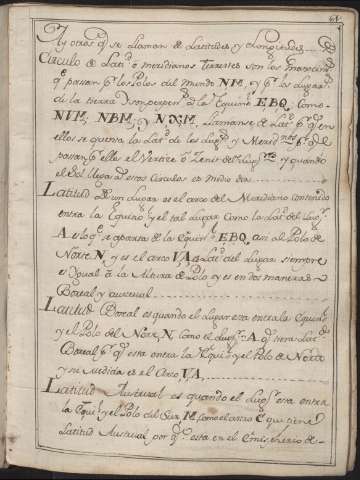 Ay otros q.e se llaman de Latitudes y Longitudes
Circulo de Lat.d o meridianos Terrestes son los
q.e pasan p.r los Polos del mundo NM, y p.r los Lugares
de la tierra son perpen.s a la Equin.l EBQ, Como
NVM, NBM, y NXM, Llamanse de Lat.d p.r q.e en
ellos se quenta la Lat.d de los Lug.s y Merid.nos p.r q.e
pasan p.r ellos el Vertice o Zenit del Lug.r y quando
el Sol llega a estos Circulos es medio dia
Latitud de un Lugar es el arco del Meridiano Contenido
entra la Equino.l y el tal Lugar Como la Lat.d del Lug.r
A es lo q.e se aparta de la Equin.l EBQ, asi al Polo de
Norte N, y es el arco VA, la Lat.d del Lugar siempre
es Igual a la Altura de Polo y es en dos maneras
Boreal y austral
Latitud Boreal es quando el Lugar esta entre la Equin.l
y el Polo del Norte N, Como el Lug.r A, q.e tiene Lat.d
Boreal p.r q.e esta entra la Equi.l y el Polo de Norte
y su medida es el Arco VA
Latitud Austrual es quando el Lug.r esta entra
la Equi.l y el Polo del Sur M, Como el arco C que tiene
Latitud Austrual por q.e esta en el Emispherio de